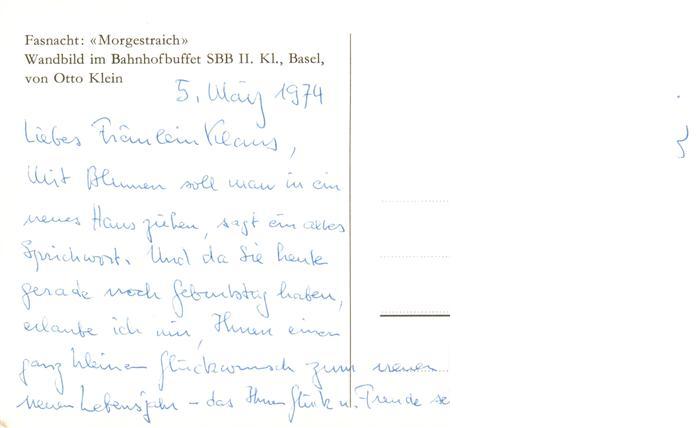 Fasnacht: «Morgestraich»
Wandbild im Bahnhofbuffet SBB II. Kl., Basel,
von Otto Klein
5. März 1974
Liebes Fräulein Klaus,
Mit Blumen soll man in ein
neues Haus ziehen, sagt ein altes
Sprichwort. Und da Sie heute
gerade noch Geburtstag haben,
erlaube ich mir, Ihnen einen
ganz kleinen Glückwunsch zum neuen
neuen Lebensjahr – das Ihnen Glück u. Freude se